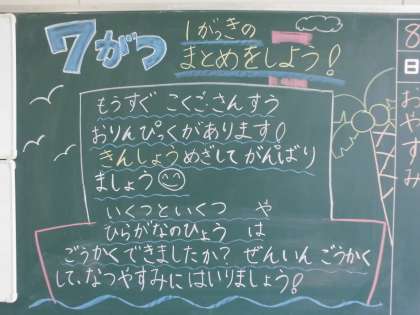 7がつ
1がっきの
まとめをしよう!
もうすぐ こくご・さんすう
おりんぴっくがあります!
きんしょうめざしてがんばり
ましょう
いくつといくつ や
ひらがなのひょう は
ごうかくできましたか? ぜんいんごうかく
して、なつやすみにはいりましょう!
8
日
おやすみ